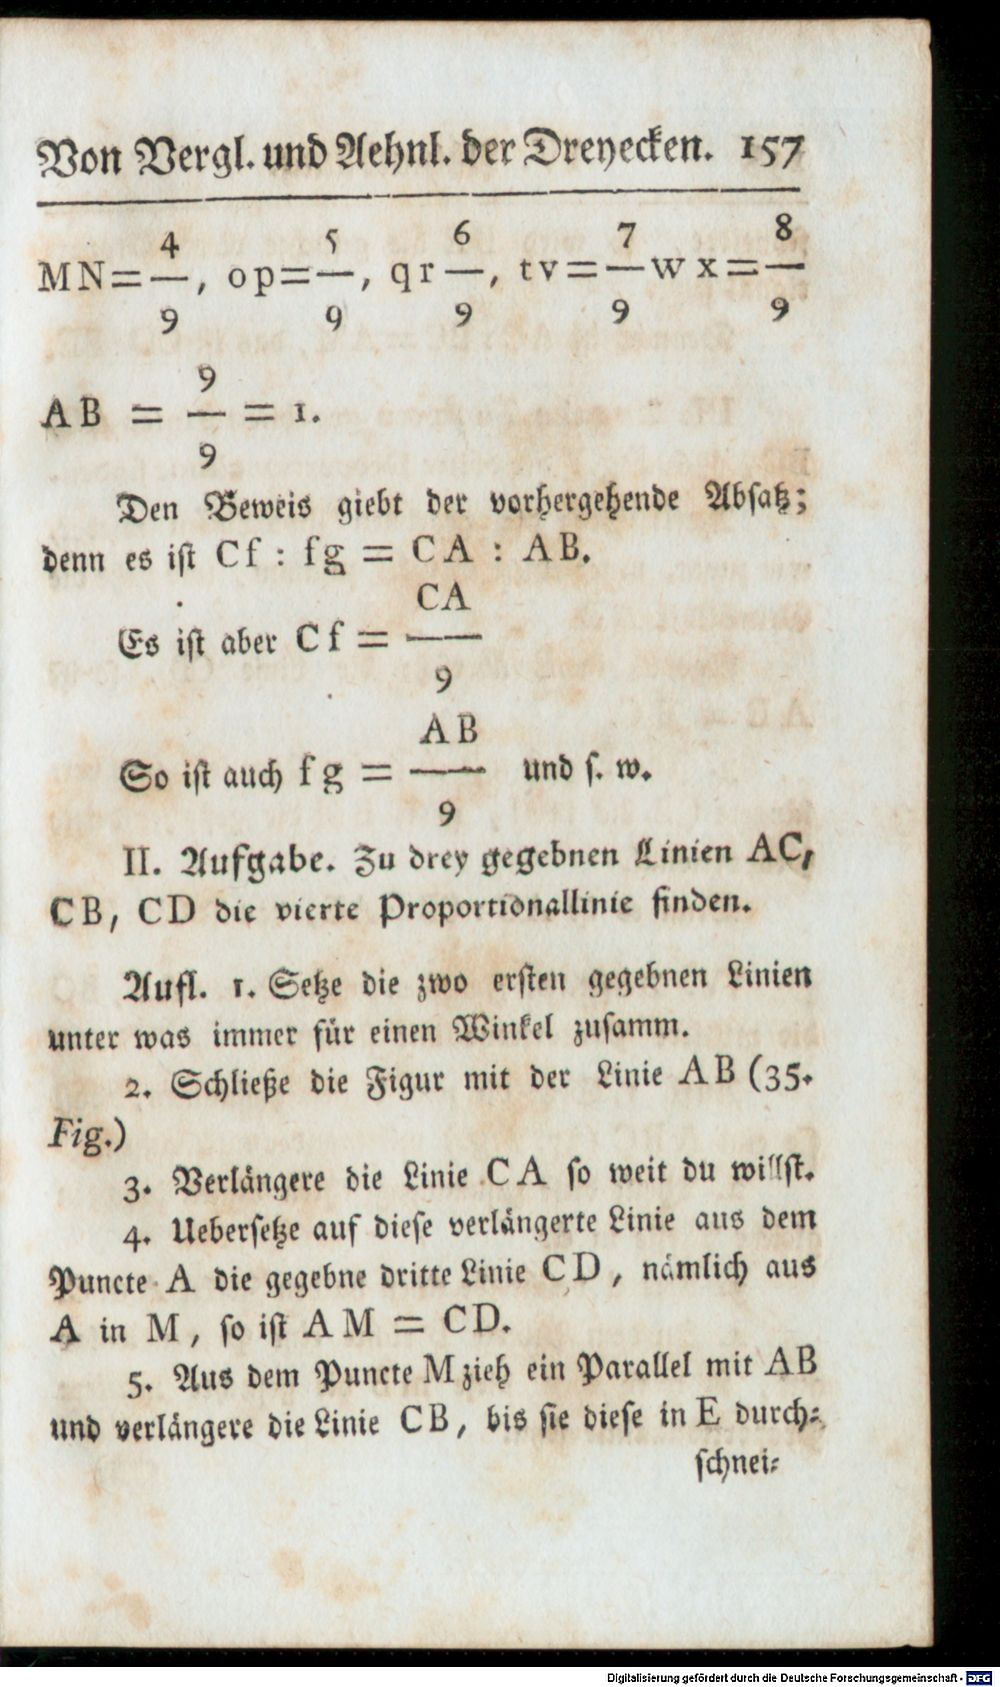 Von Vergl. und Aehnl. der Dreyecken. 157
MN=4/9, op=5/9, qr 6/9, tv=7/9 w x=8/9
AB = 9/9 = 1.
Den Beweis giebt der vorhergehende Absatz;
denn es ist Cf : fg = CA : AB.
Es ist aber Cf = CA/9
So ist auch fg = AB/9 und s. w.
II. Aufgabe. Zu drey gegebnen Linien AC,
CB, CD die vierte Proportionallinie finden.
Aufl. 1. Setze die zwo ersten gegebnen Linien
unter was immer für einen Winkel zusamm.
2. Schließe die Figur mit der Linie AB (35.
Fig.)
3. Verlängere die Linie CA so weit du willst.
4. Uebersetze auf diese verlängerte Linie aus dem
Puncte A die gegebne dritte Linie CD, nämlich aus
A in M, so ist AM = CD.
5. Aus dem Puncte M zieh ein Parallel mit AB
und verlängere die Linie CB, bis sie diese in E durch-
schnei-
Digitalisierung gefördert durch die Deutsche Forschungsgemeinschaft - DFG